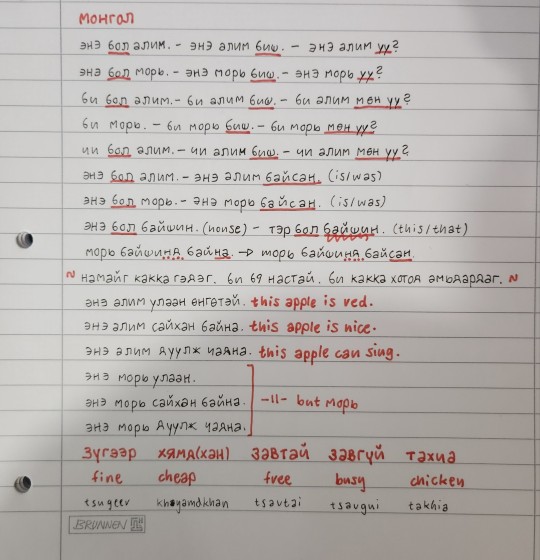 монгол
энэ бол алим. - энэ алим биш. - энэ алим уу?
энэ бол морь. - энэ морь биш. - энэ морь уу?
би бол алим. - би алим биш. - би алим мөн уу?
би морь. - би морь биш. - би морь мөн уу?
чи бол алим. - чи алим биш. - чи алим мөн уу?
энэ бол алим. - энэ алим байсан. (is/was)
энэ бол морь. - энэ морь байсан. (is/was)
энэ бол байшин. (house) - тэр бол байшин. (this/that)
морь байшинд байна. → морь байшинд байсан.
~ намайг какка гэдэг. би 69 настай. би какка хотод амьдардаг. ~
энэ алим улаан өнгөтэй. this apple is red.
энэ алим сайхан байна. this apple is nice.
энэ алим дуулж чадна. this apple can sing.
энэ морь улаан.
энэ морь сайхан байна. -||- but морь
энэ морь дуулж чадна.
зүгээр хямд(хан) завтай завгүй тахиа
fine cheap free busy chicken
tsugeer khyamdkhan tsavtai tsavgui takhia
BRUNNEN